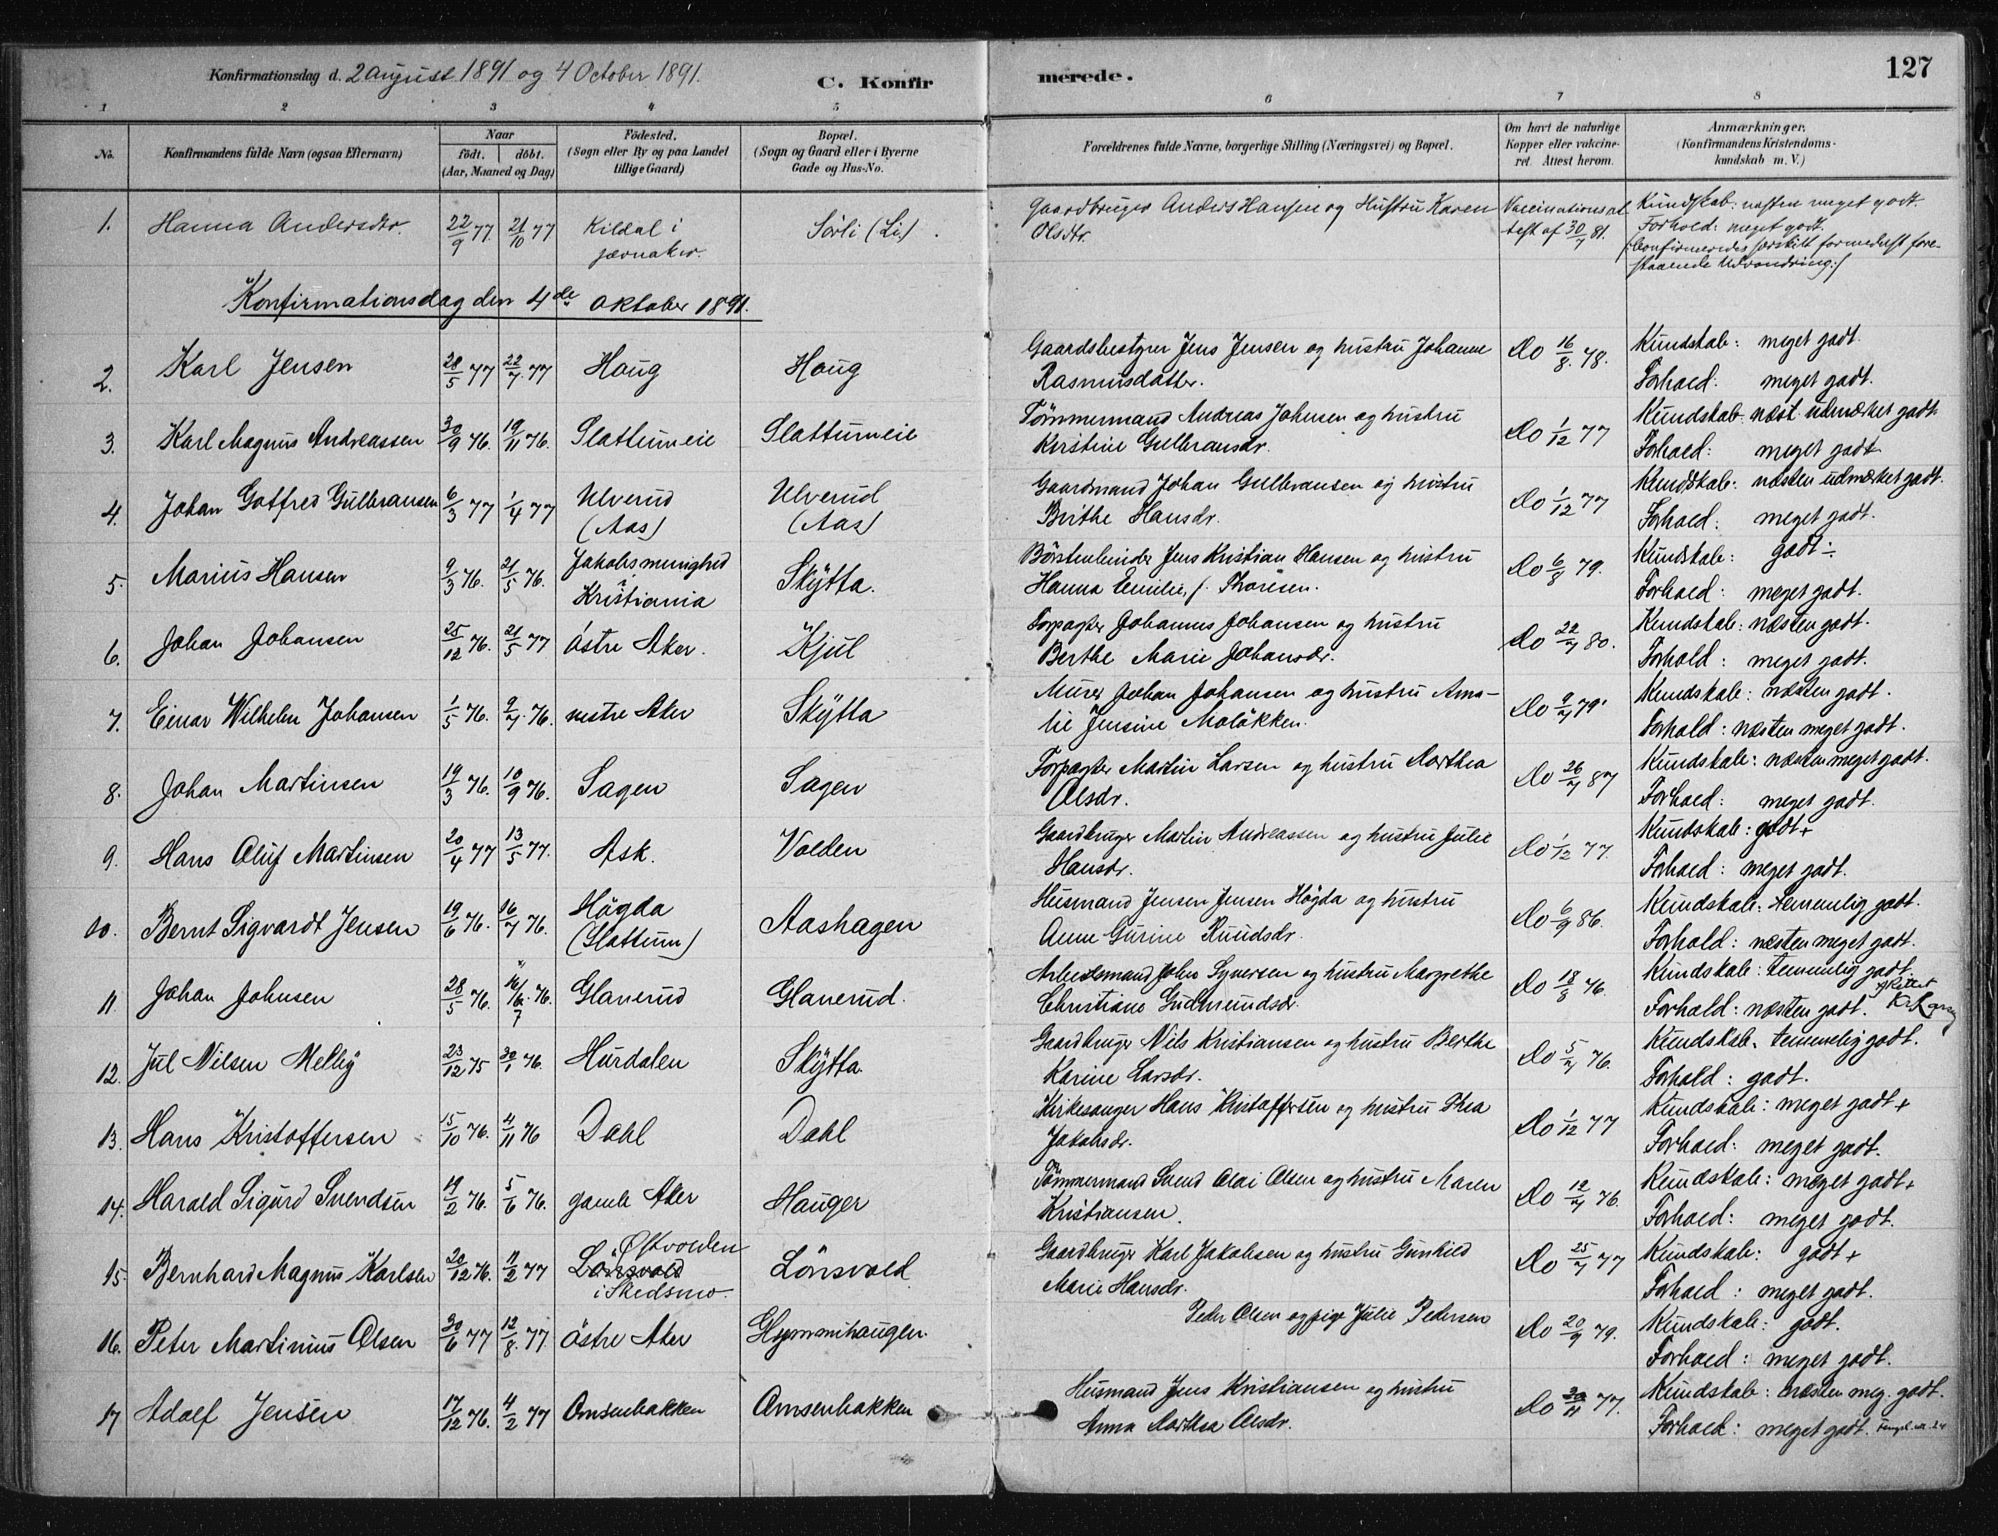 Konfirmationsdag d. 2 august 1891 og 4 October 1891.
C. Konfirmerede.
127
1 2 3 4 5 6 7 8
No.
Konfirmandens fulde Navn (ogsaa Efternavn)
Naar
födt. döbt.
(Aar, Maaned og Dag)
Födested.
(Sogn eller By og paa Landet
tillige Gaard)
Bopæl.
(Sogn og Gaard eller i Byerne
Gade og Hus-No.
Forældrenes fulde Navne, borgerlige Stilling (Næringsvei) og Bopæl.
Om havt de naturlige
Kopper eller vakcine-
ret. Attest herom.
Anmærkninger.
(Konfirmandens Kristendoms-
kundskab m. V.)
1. Hanna Andersdtr. 22/9 77. 21/10 77 Kildal i Sörli (Li) Gaardbruger Anders Hansen og Hustru Karen Vaccinationsat Kundskab: næsten meget godt.
jævnaker. Olsdtr. test af 30/7 81. Forhold: meget godt.
(:Confirmeredes særskilt formedelst fore-
staaende Udvandring:)
Konfirmationsdag den 4de Oktober 1891.
2. Karl Jensen 28/5 77 22/7 77 Houg Houg Gaardsbestyrer Jens Jensen og hustru Johanne Do 16/8 78. Kundskab: meget godt.
Rasmusdatter. Forhold: meget godt.
3. Karl Magnus Andreassen 30/9 76. 19/11 76. Slattumeie Slattumeie Tömmermand Andreas Johnsen og hustru Do 1/12 77 Kundskab: næst. udmærket godt
Kristine Gulbransdr. Forhold: meget godt.
4. Johan Gotfred Gulbransen 6/3 77 1/4 77 Ulverud Ulverud Gaardmand Johan Gulbransen og hustru Do 1/12 77 Kundskab: næsten udmærket godt.
(Aas) (Aas) Brithe Hansdr. Forhold: meget godt.
5. Marius Hansen 9/3 76. 21/5 76. Jakobs menighed Skÿtta. Börstenbinder Jens Kristian Hansen og hustru Do 6/8 79. Kundskab: godt ÷
Kristiania Hanna Emilie, f. Thoresen. Forhold: meget godt.
6. Johan Johansen 25/12 76. 21/5 77 östre Aker. Kjul Forpagter Johannes Johansen og hustru Do 22/7 80. Kundskab: næsten godt.
Berthe Marie Johansdr. Forhold: meget godt.
7. Einar Wilhelm Johansen 1/5 76. 9/7 76. vestre Aker Skÿtta Murer Johan Johansen og hustru Ama- Do 9/7 79. Kundskab: næsten godt.
lie Jensine Molökken. Forhold: næsten meget godt.
8. Johan Martinsen 19/3 76. 10/9 76. Sagen Sagen Forpagter Martin Larsen og hustru Dorthea Do 26/7 87 Kundskab: næsten meget godt.
Olsdr. Forhold: meget godt.
9. Hans Oluf Martinsen 20/4 77 13/5 77. Ask. Volden Gaardbruger Martin Andreassen og hustru Julie Do 1/12 77. Kundskab: godt +
Hansdr. Forhold: meget godt.
10. Bernt Sigvardt Jensen 19/6 76. 16/7 76. Högda Aashagen Husmand Jensen Jensen Högda og hustru Do 6/9 86. Kundskab: temmelig godt.
(Slattum) Anne Gurine Ruudsdr. Forhold: næsten meget godt.
11. Johan Johnsen 28/5 76. 16/7 76. Glanerud Glanerud. Arbeidsmand John Syversen og hustru Margrethe Do 18/8 76. Kundskab: temmelig godt.
Christiane Gudmundsdr. Forhold: næsten godt.
12. Jul Nilsen Melby 23/12 75 30/1 76. Hurdalen Skÿtta. Gaardbruger Nils Kristiansen og hustru Berthe Do 5/7 76. Kundskab. temmelig godt.
Karine Larsdr. Forhold: godt.
13. Hans Kristoffersen 15/10 76. 4/11 76 Dahl Dahl Kirkesanger Hans Kristoffersen og hustru Thea Do 1/12 77 Kundskab: meget godt +
Jakobsdr. Forhold: meget godt.
14. Harald Sigurd Svendsen 19/2 76. 5/6 76. gamle Aker Hauger Tömmermand Svend Olai Olsen og hustru Maren Do 12/7 76. Kundskab: meget godt +
Kristiansen. Forhold: meget godt.
15. Bernhard Magnus Karlsen 20/12 76. 11/2 77 Östvolden Lönsvold Gaardbruger Karl Jakobsen og hustru Gunhild Do 25/7 77 Kundskab: godt +
i Skedsmo. Marie Hansdr. Forhold: meget godt.
16. Peter Martinius Olsen 30/6 77 12/8 77. östre Aker Glymmihaugen Peder Olsen og pige Julie Pedersen Do 20/9 79. Kundskab: godt.
Forhold: meget godt.
17 Adolf Jensen 17/12 76. 4/2 77 Omsenbakken Omsenbakken Husmand Jens Kristiansen og hustru Do 30/11 77. Kundskab: næsten meg. godt.
Anna Dorthea Olsdr. Forhold: meget godt.